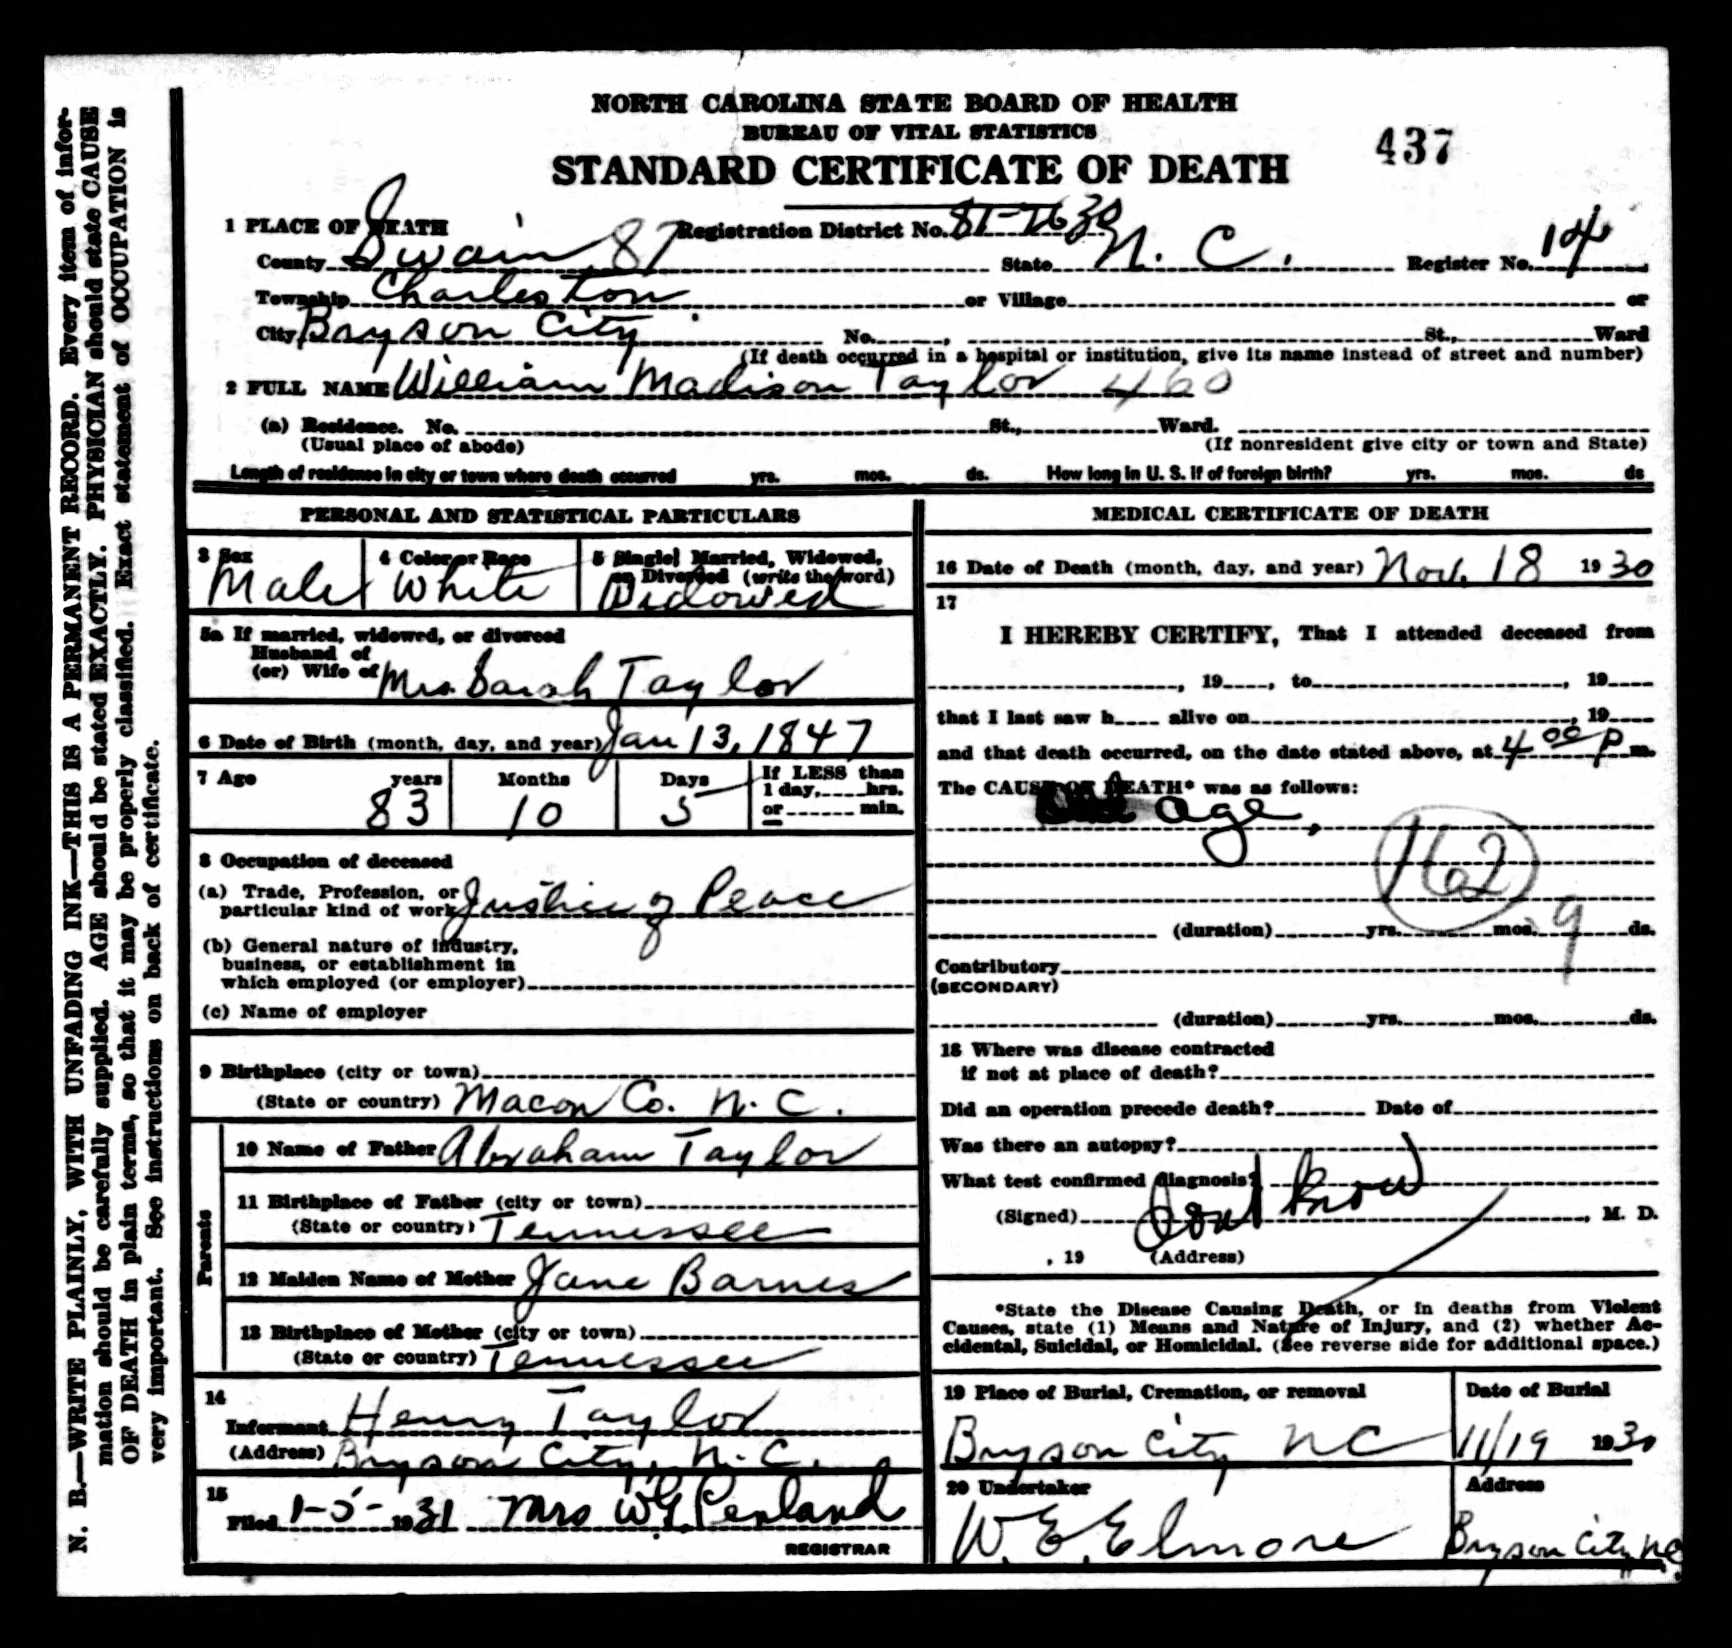 NORTH CAROLINA STATE BOARD OF HEALTH
BUREAU OF VITAL STATISTICS
STANDARD CERTIFICATE OF DEATH
437
1 PLACE OF DEATH
Registration District No. 87-7630
County Swain 87 State N. C. Register No. 14
Township Charleston or Village or
City Bryson City No. , St., Ward
(If death occurred in a hospital or institution, give its name instead of street and number)
2 FULL NAME William Madison Taylor 460
(a) Residence. No. St., Ward.
(Usual place of abode) (If nonresident give city or town and State)
Length of residence in city or town where death occurred yrs. mos. ds. How long in U. S. if of foreign birth? yrs. mos. ds
PERSONAL AND STATISTICAL PARTICULARS
3 Sex
Male
4 Color or Race
White
5 Single, Married, Widowed,
or Divorced (write the word)
Widowed
5a If married, widowed, or divorced
Husband of
(or) Wife of Mrs. Sarah Taylor
6 Date of Birth (month, day, and year) Jan 13, 1847
7 Age years Months Days If LESS than
1 day, hrs.
or min.
83 10 5
8 Occupation of deceased
(a) Trade, Profession, or
particular kind of work Justice of Peace
(b) General nature of industry,
business, or establishment in
which employed (or employer)
(c) Name of employer
9 Birthplace (city or town)
(State or country) Macon Co. N. C.
Parents
10 Name of Father Abraham Taylor
11 Birthplace of Father (city or town)
(State or country) Tennessee
12 Maiden Name of Mother Jane Barnes
13 Birthplace of Mother (city or town)
(State or country) Tennessee
14
Informant Henry Taylor
(Address) Bryson City, N. C.
15
Filed 1-5- 1931 Mrs W G Penland
REGISTRAR
MEDICAL CERTIFICATE OF DEATH
16 Date of Death (month, day, and year) Nov. 18 1930
17
I HEREBY CERTIFY, That I attended deceased from
, 19 , to , 19
that I last saw h alive on , 19
and that death occurred, on the date stated above, at 4 00 P m.
The CAUSE OF DEATH* was as follows:
Old age,
162
(duration) yrs. mos. 9 ds.
Contributory
(SECONDARY)
(duration) yrs. mos. ds.
18 Where was disease contracted
if not at place of death?
Did an operation precede death? Date of
Was there an autopsy?
What test confirmed diagnosis?
(Signed) Dont Know , M. D.
, 19 (Address)
*State the Disease Causing Death, or in deaths from Violent
Causes, state (1) Means and Nature of Injury, and (2) whether Ac-
cidental, Suicidal, or Homicidal. (See reverse side for additional space.)
19 Place of Burial, Cremation, or removal
Bryson City NC
Date of Burial
11/19 1930
20 Undertaker
W. E. Elmore
Address
Bryson City, NC.
N. B.—WRITE PLAINLY, WITH UNFADING INK—THIS IS A PERMANENT RECORD. Every item of infor-
mation should be carefully supplied. AGE should be stated EXACTLY. PHYSICIAN should state CAUSE
OF DEATH in plain terms, so that it may be properly classified. Exact statement of OCCUPATION is
very important. See instructions on back of certificate.